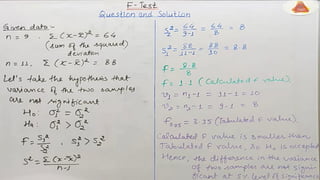 F-Test
Question and Solution
Given data-
n = 9, Σ(x-x̄)² = 64
(sum of the squared)
deviation
n = 11, Σ(x-x̄)² = 88
Let's take the hypothesis that
variance of the two samples
are not significant
H₀: σ₁² = σ₂²
σ₁² > σ₂²
F = S₁²/S₂², S₁² > S₂²
S² = Σ(x-x̄)²/n-1
S₂² = 64/9-1 = 64/8 = 8
= 88/11-1 = 88/10 = 8.8
F = 8.8/8
F = 1.1 (Calculated F value)
ν₁ = n₁-1 = 11-1 = 10
ν₂ = n₂-1 = 9-1 = 8
= 3.35 (Tabulated F value)
Calculated F value is smaller than
Tabulated F value, So H₀ is accepted
Hence, the difference in the variance
of two samples are not signi-
ficant at 5% level of significance